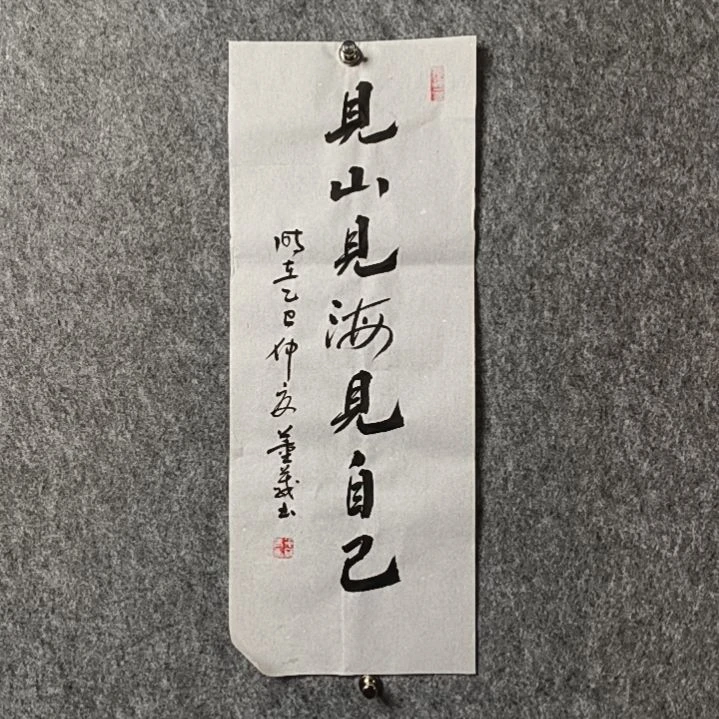 見山見海見自己
時在乙巳仲夏董義書